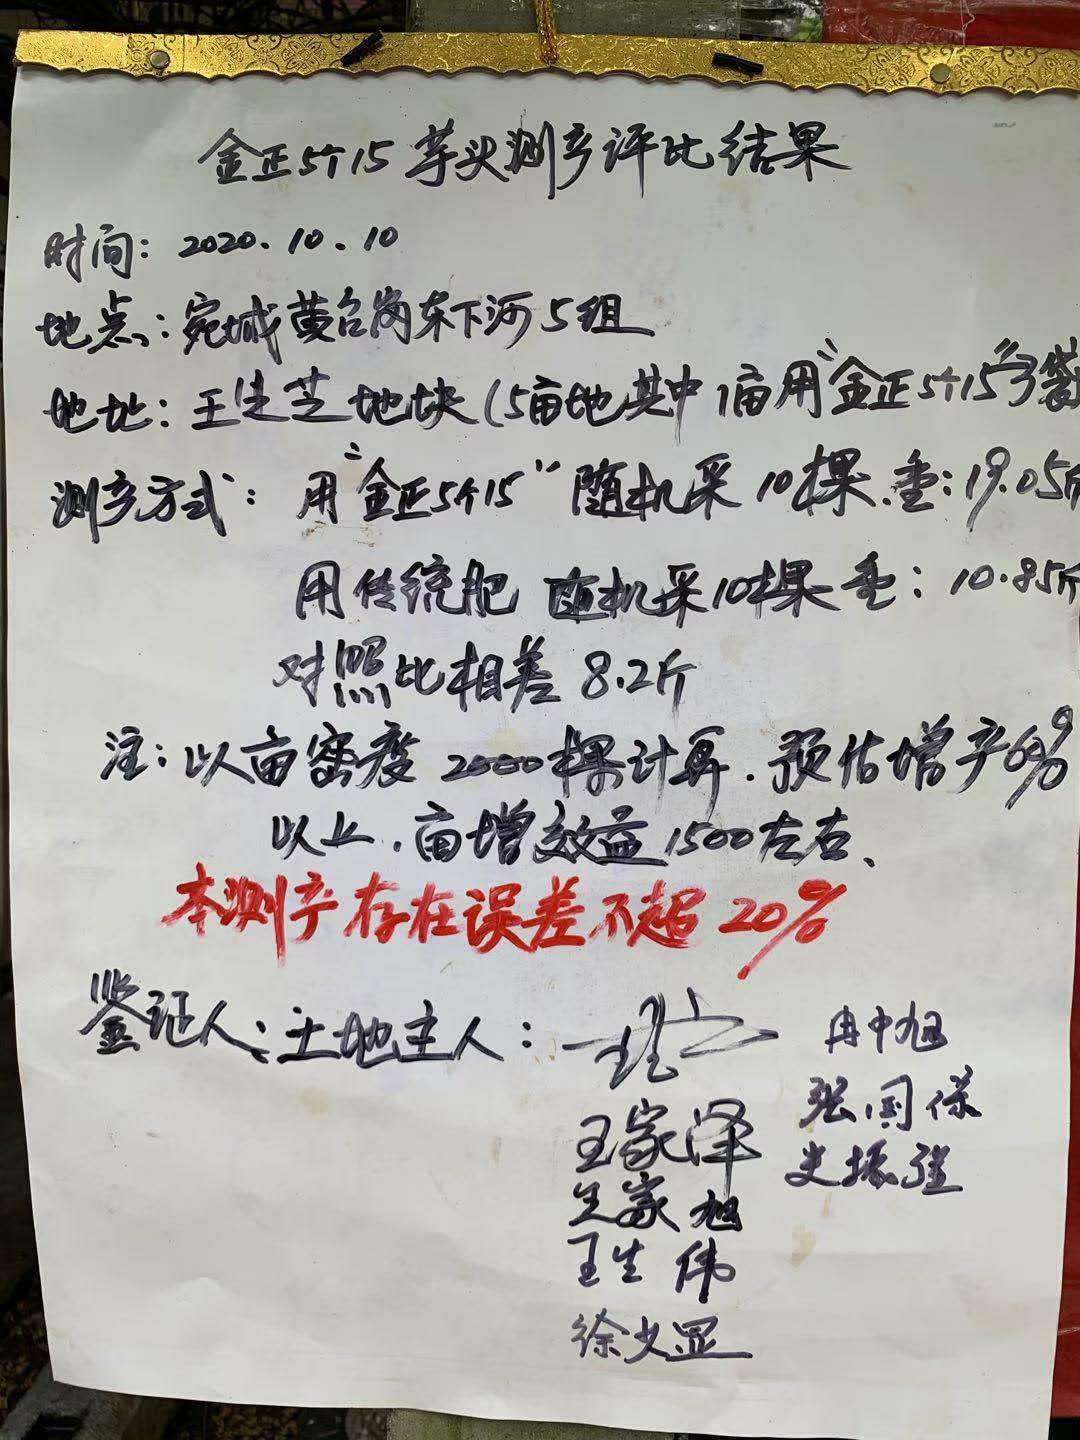 金正5个15芋头测产评比结果
时间：2020.10.10
地点：宛城黄台岗东下河5组
地址：王先芝地块(5亩地其中1亩用"金正5个15"3袋
测产方式：用"金正5个15"随机采10棵.重：19.05斤
用传统肥 随机采10棵重：10.85斤
对照比相差8.2斤
注：以亩密度2000棵计算.预估增产60%
以上.亩增效益1500左右、
本测产存在误差不超20%
鉴证人：土地主人： 冉中旭
王家泽 张国保
王家旭 史振强
王生伟
徐少显